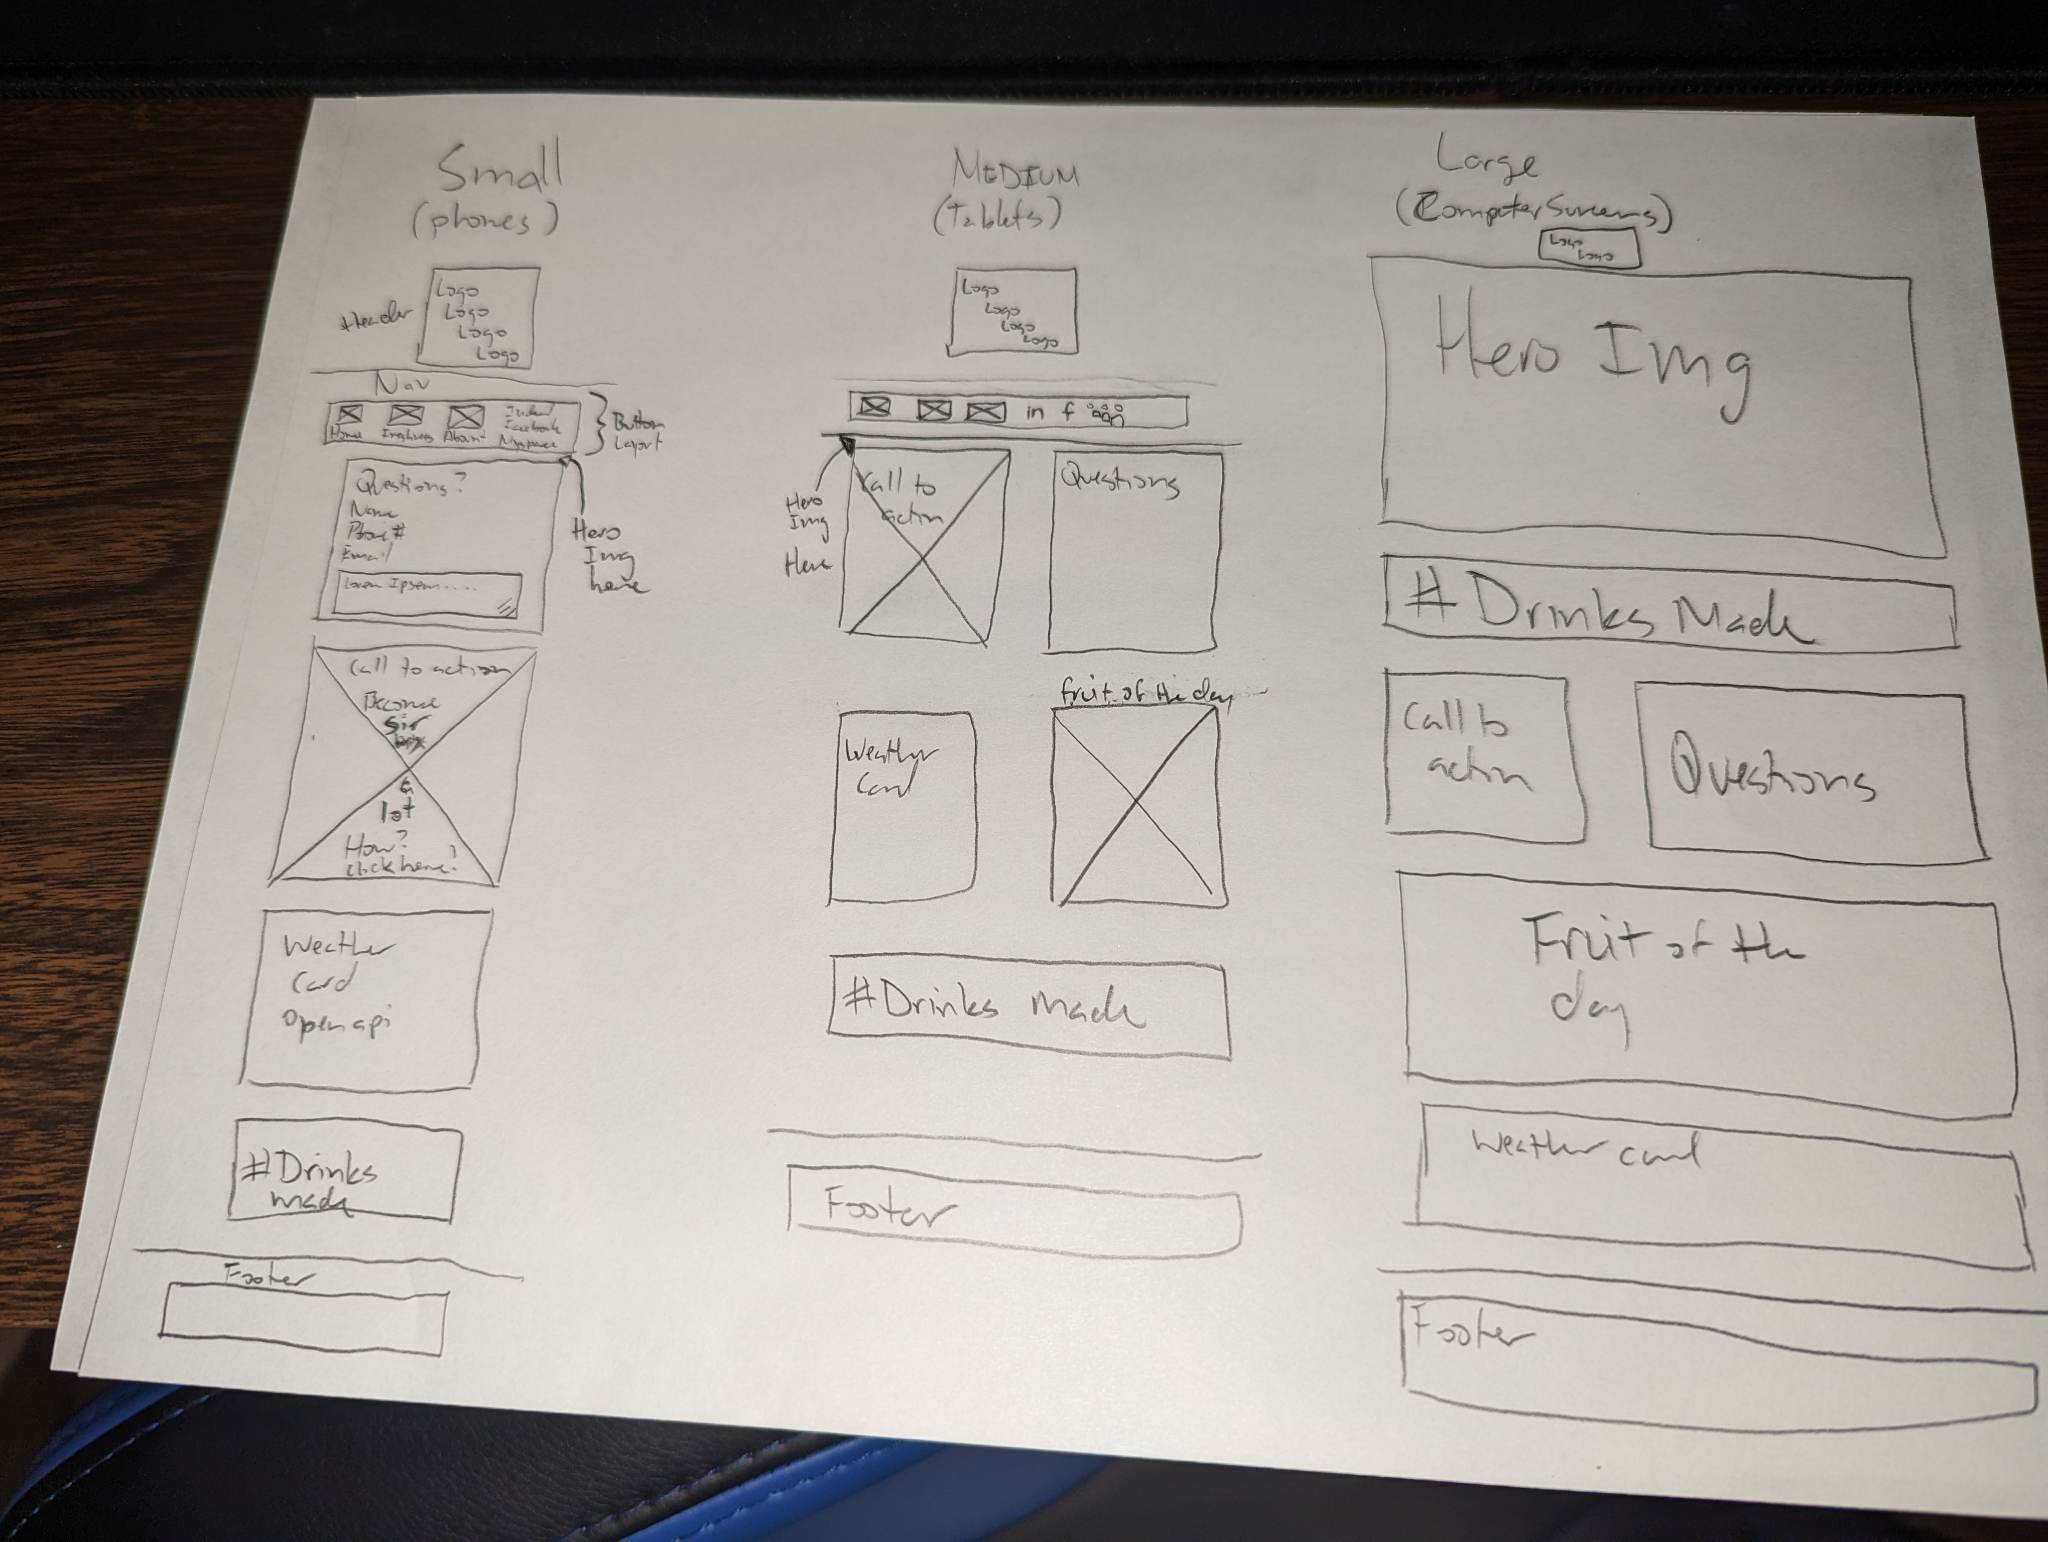 Small
(phones)
Header
Logo
Logo
Logo
Logo
Nav
Home
About
Button
Layout
Questions?
Name
Phone #
Email
Lorem Ipsem.....
Hero
Img
here
Call to action
Become
Sir
a
lot
How?
click here?
Weather
Card
Open api
#Drinks
made
Footer
MEDIUM
(Tablets)
Logo
Logo
Logo
Logo
in f
Hero
Img
Here
Call to
action
Questions
Fruit of the day
Weather
Card
#Drinks made
Footer
Large
(Computer Screens)
Logo
Logo
Hero Img
# Drinks Made
Call to
action
Questions
Fruit of the
day
Weather card
Footer